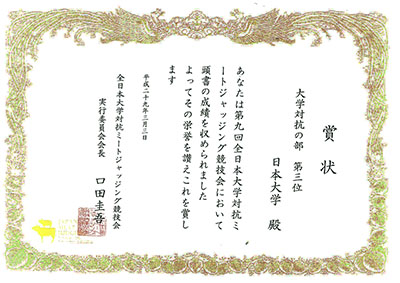 賞状
大学対抗の部 第三位
日本大学 殿
あなたは第九回全日本大学対抗ミ
ートジャッジング競技会において
頭書の成績を収められました
よってその栄誉を讃えこれを賞し
ます
平成二十九年三月三日
全日本大学対抗ミートジャッジング競技会
実行委員会会長 口田圭吾